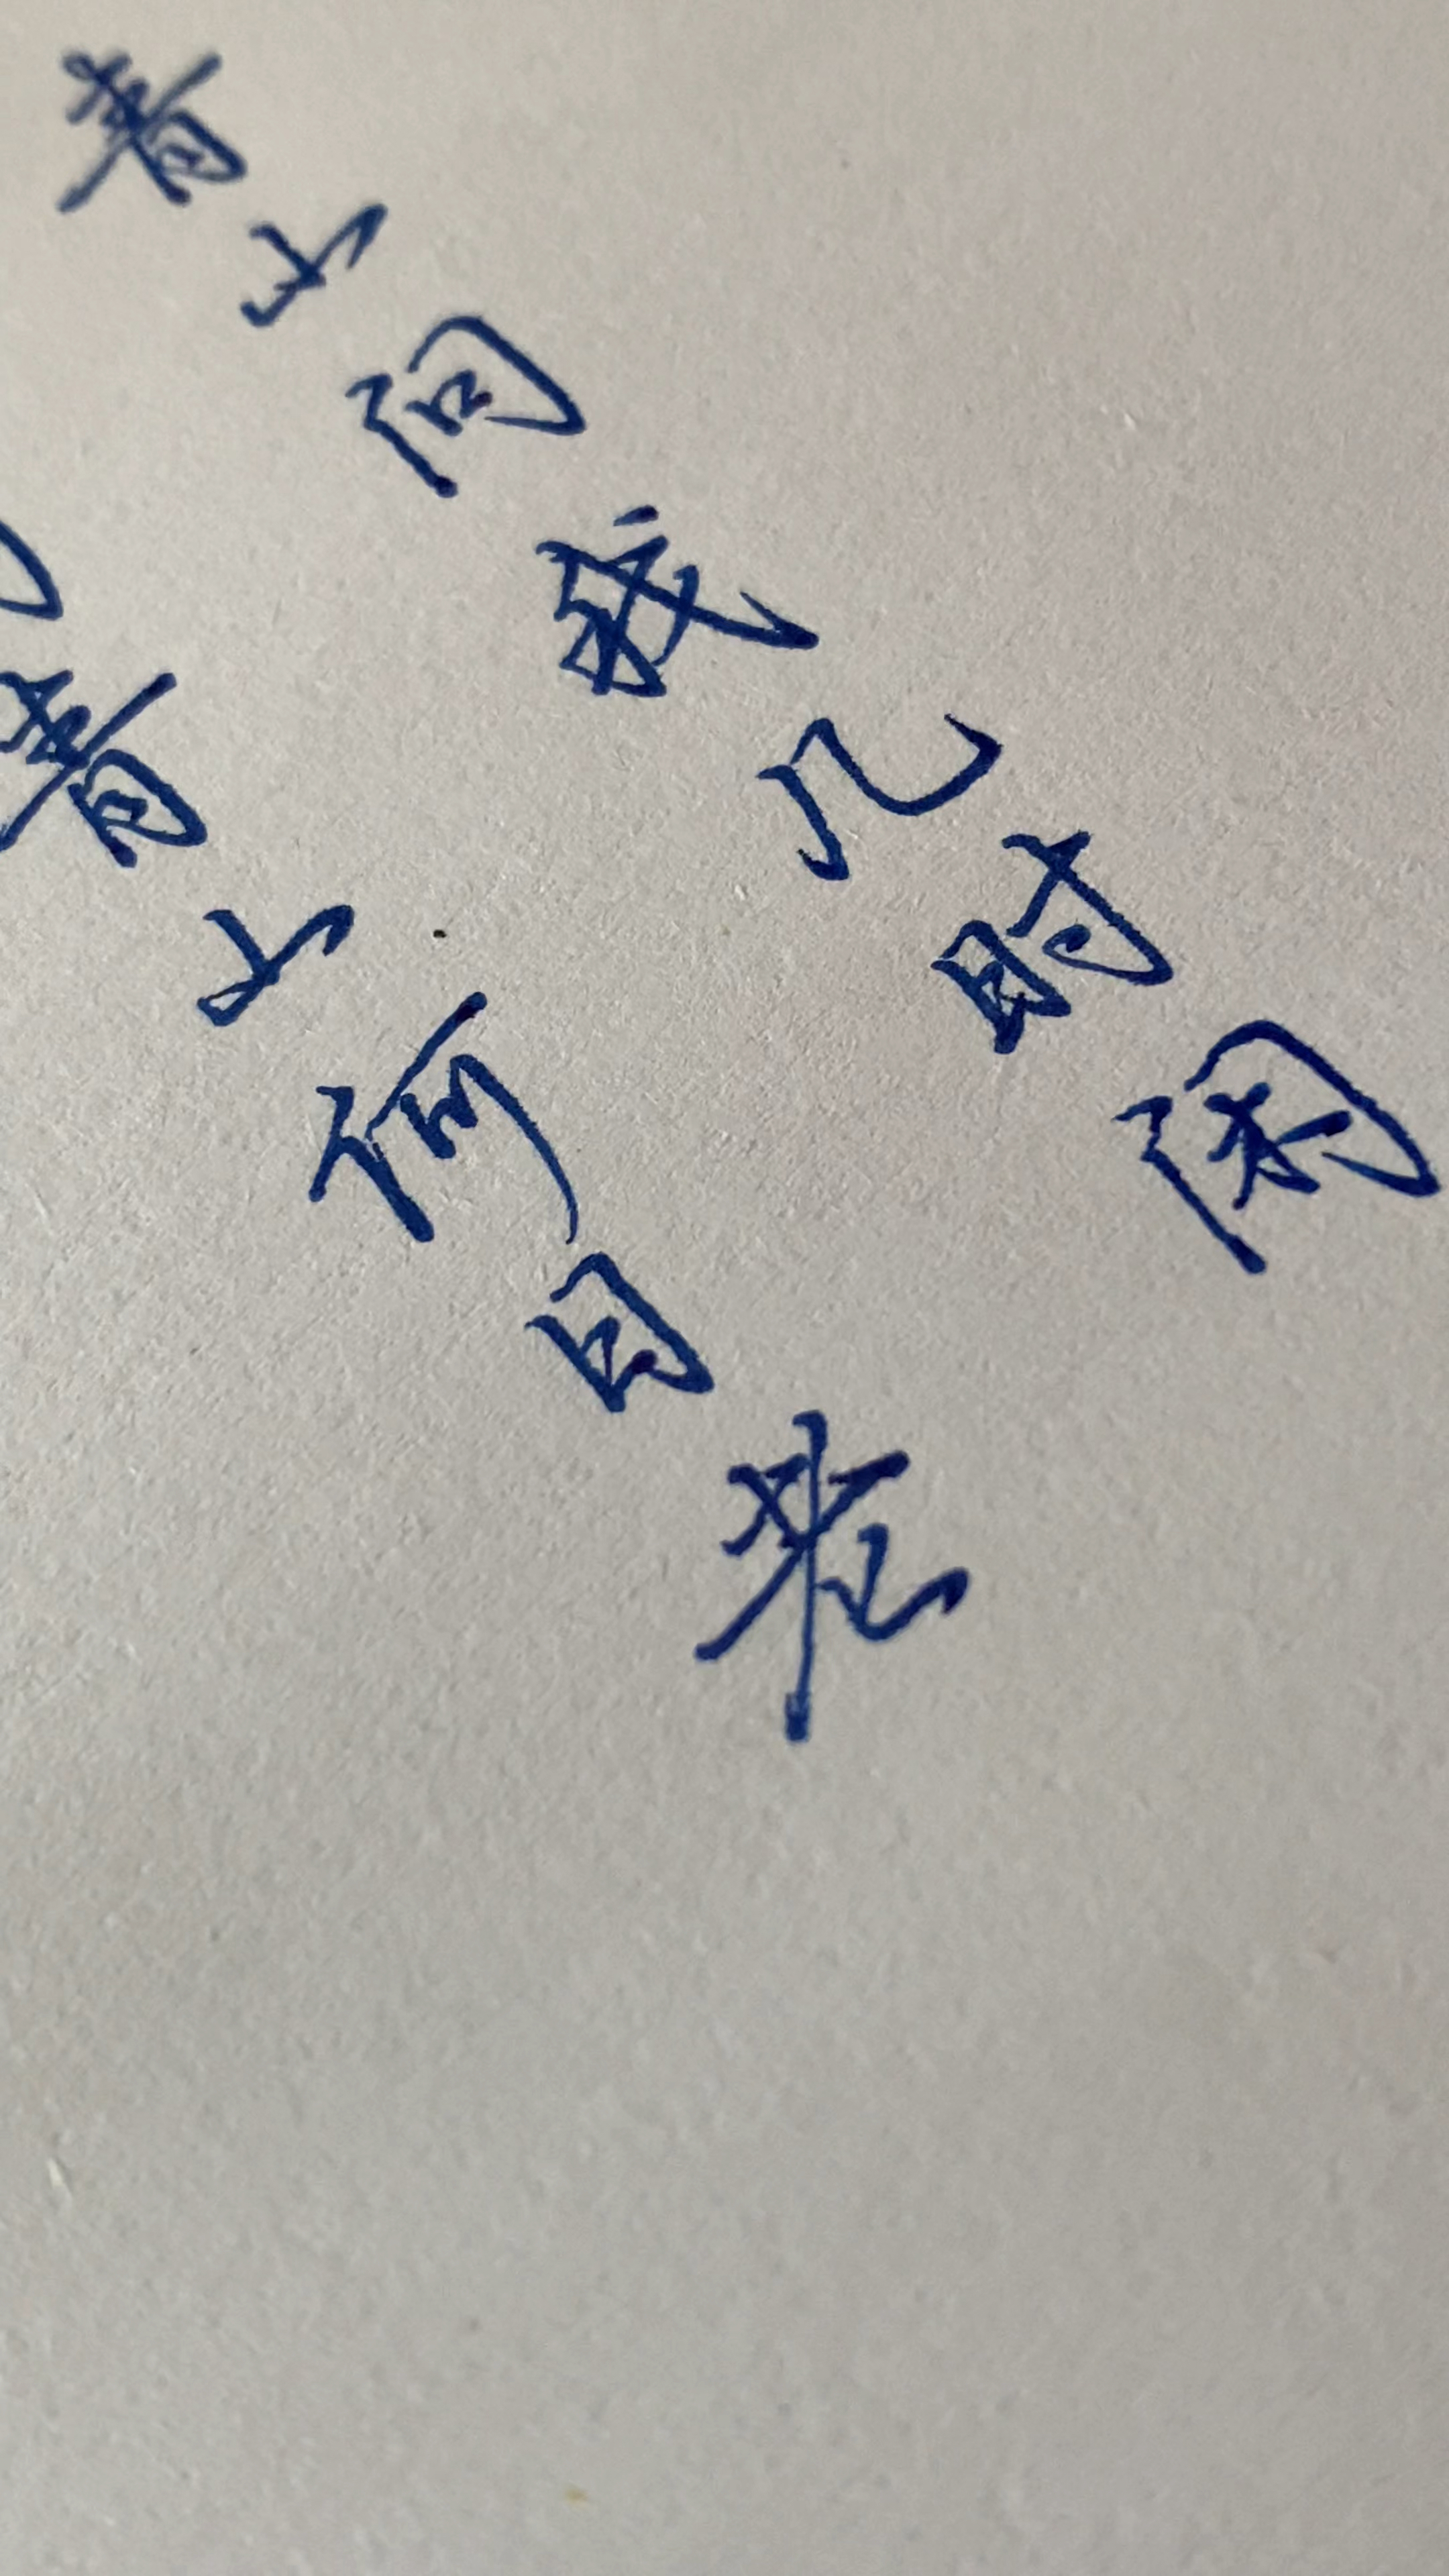 青山问我几时闲
青山何日来